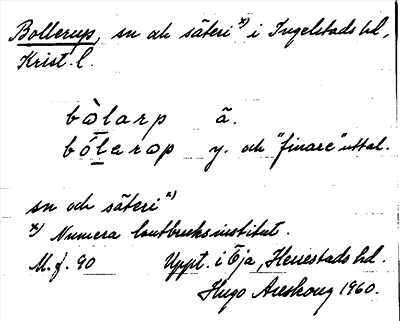 Bollerup, sn och säteri x) i Ingelstads hd,
Krist. l.
bòlarp ä.
bólerop y. och "finare" uttal.
sn och säteri x)
x) Numera lantbruksinstitut.
M. f. 90 Uppt. i Öja, Herrestads hd.
Hugo Areskoug 1960.